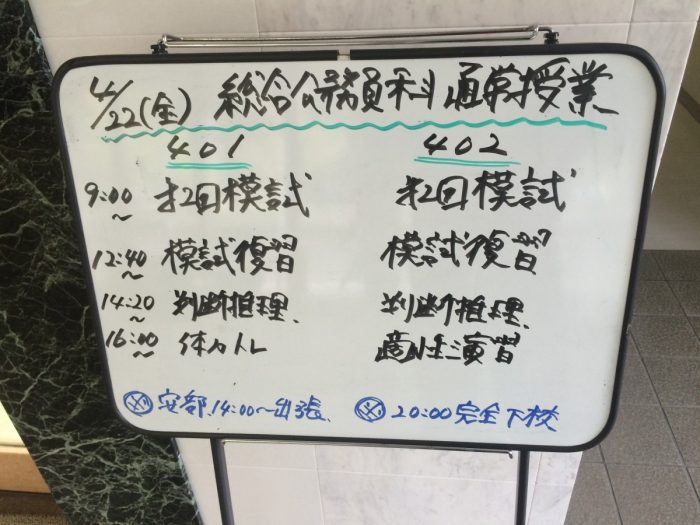 4/22(金) 総合公務員科通常授業
401 402
9:00~ 才2回模試 才2回模試
12:40~ 模試復習 模試復習
14:20~ 判断推理 判断推理
16:00~ 体力トレ 適性演習
安部 14:00~出張 20:00完全下校